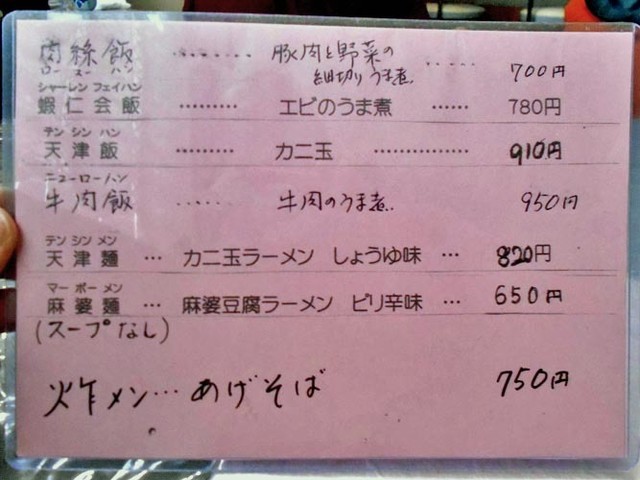 ロースーハン
肉絲飯 ........ 豚肉と野菜の ..... 700円
細切りうま煮
シャーレン フェイハン
蝦仁会飯 ......... エビのうま煮 ...... 780円
テン シン ハン
天津飯 ......... カニ玉 ............... 910円
ニューローハン
牛肉飯 ..... 牛肉のうま煮 950円
テン シン メン
天津麺 … カニ玉ラーメン しょうゆ味 … 820円
マー ボー メン
麻婆麺 … 麻婆豆腐ラーメン ピリ辛味 … 650円
(スープなし)
炸メン… あげそば 750円